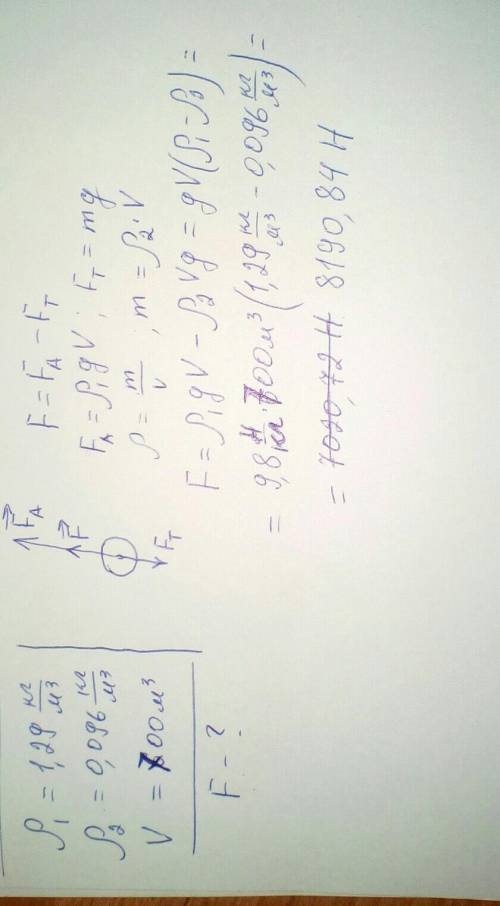 ρ₁ = 1,29 кг/м³
ρ₂ = 0,096 кг/м³
V = 700 м³
F - ?
F⃗A
F⃗
FТ
F = FA - FТ
FA = ρ₁gV ; FТ = mg
ρ = m/V ; m = ρ₂·V
F = ρ₁gV - ρ₂Vg = gV(ρ₁-ρ₂) =
= 9,8 Н/кг · 700 м³ (1,29 кг/м³ - 0,096 кг/м³) =
= 7020,72 Н 8190,84 Н